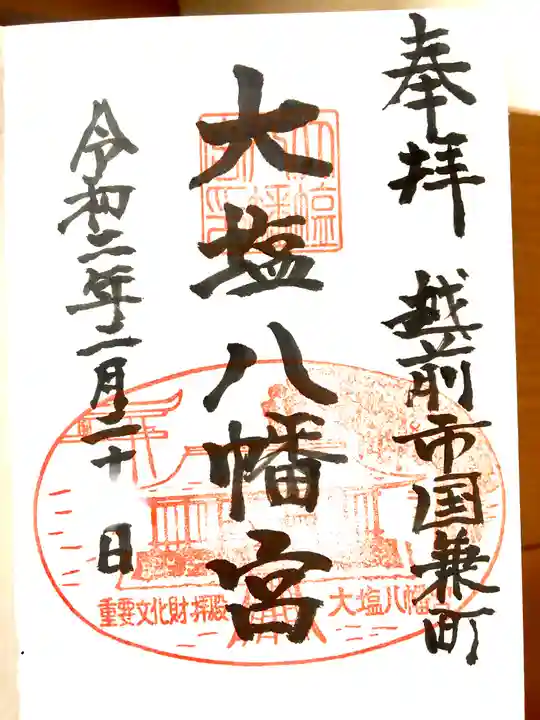 奉拝 越前市国兼町
大塩八幡宮
令和二年二月二十日
重要文化財 拝殿
大塩八幡宮